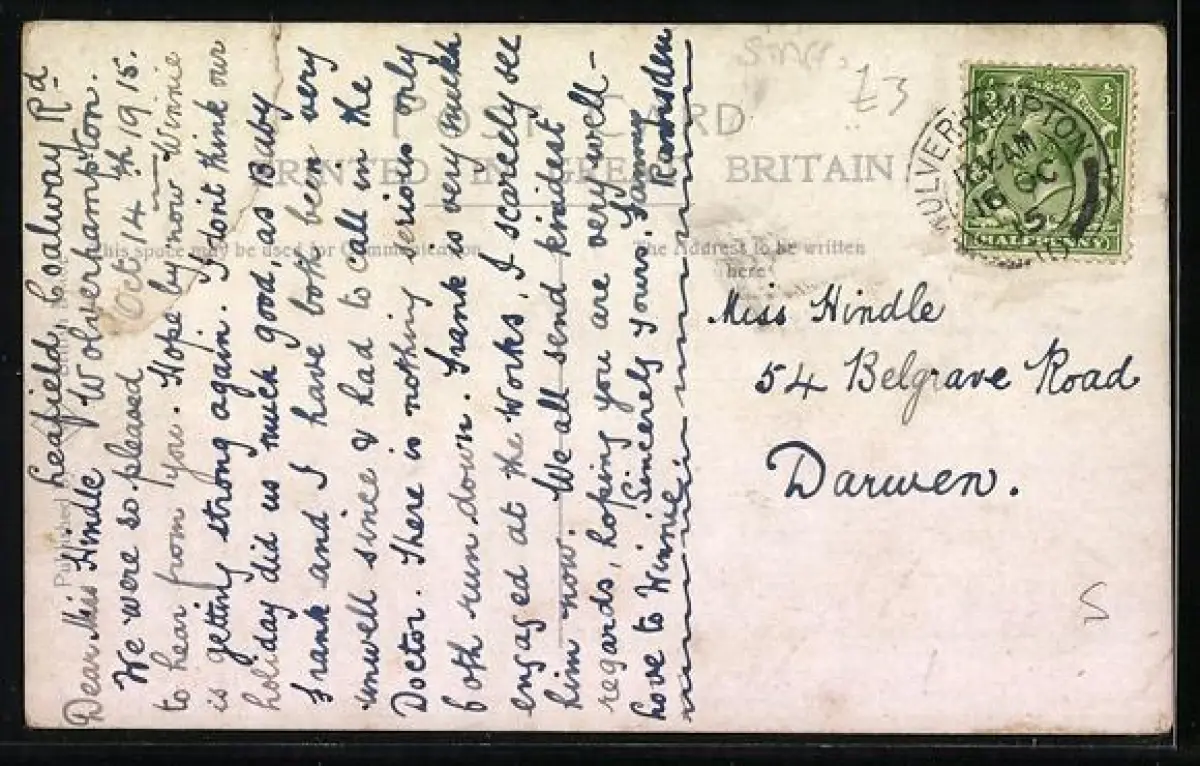 Leafield, Coalway Rd
Wolverhampton.
Oct. 14th 1915.
Dear Miss Hindle
We were so pleased
to hear from you. Hope by now Winnie
is getting strong again. I dont think our
holiday did us much good, as Baby
Frank and I have both been very
unwell since & had to call in the
Doctor. There is nothing serious only
both run down. Frank is very much
engaged at the Works, I scarcely see
him now. We all send kindest
regards, hoping you are very well-
Love to Winnie. Sincerely Yours. Fanny
Ramsden
POST CARD
PRINTED IN GREAT BRITAIN
This space may be used for Communication
The Address to be written
here
£3
WOLVERHAMPTON
OC
15
HALFPENNY
1/2
1/2
Miss Hindle
54 Belgrave Road
Darwen.